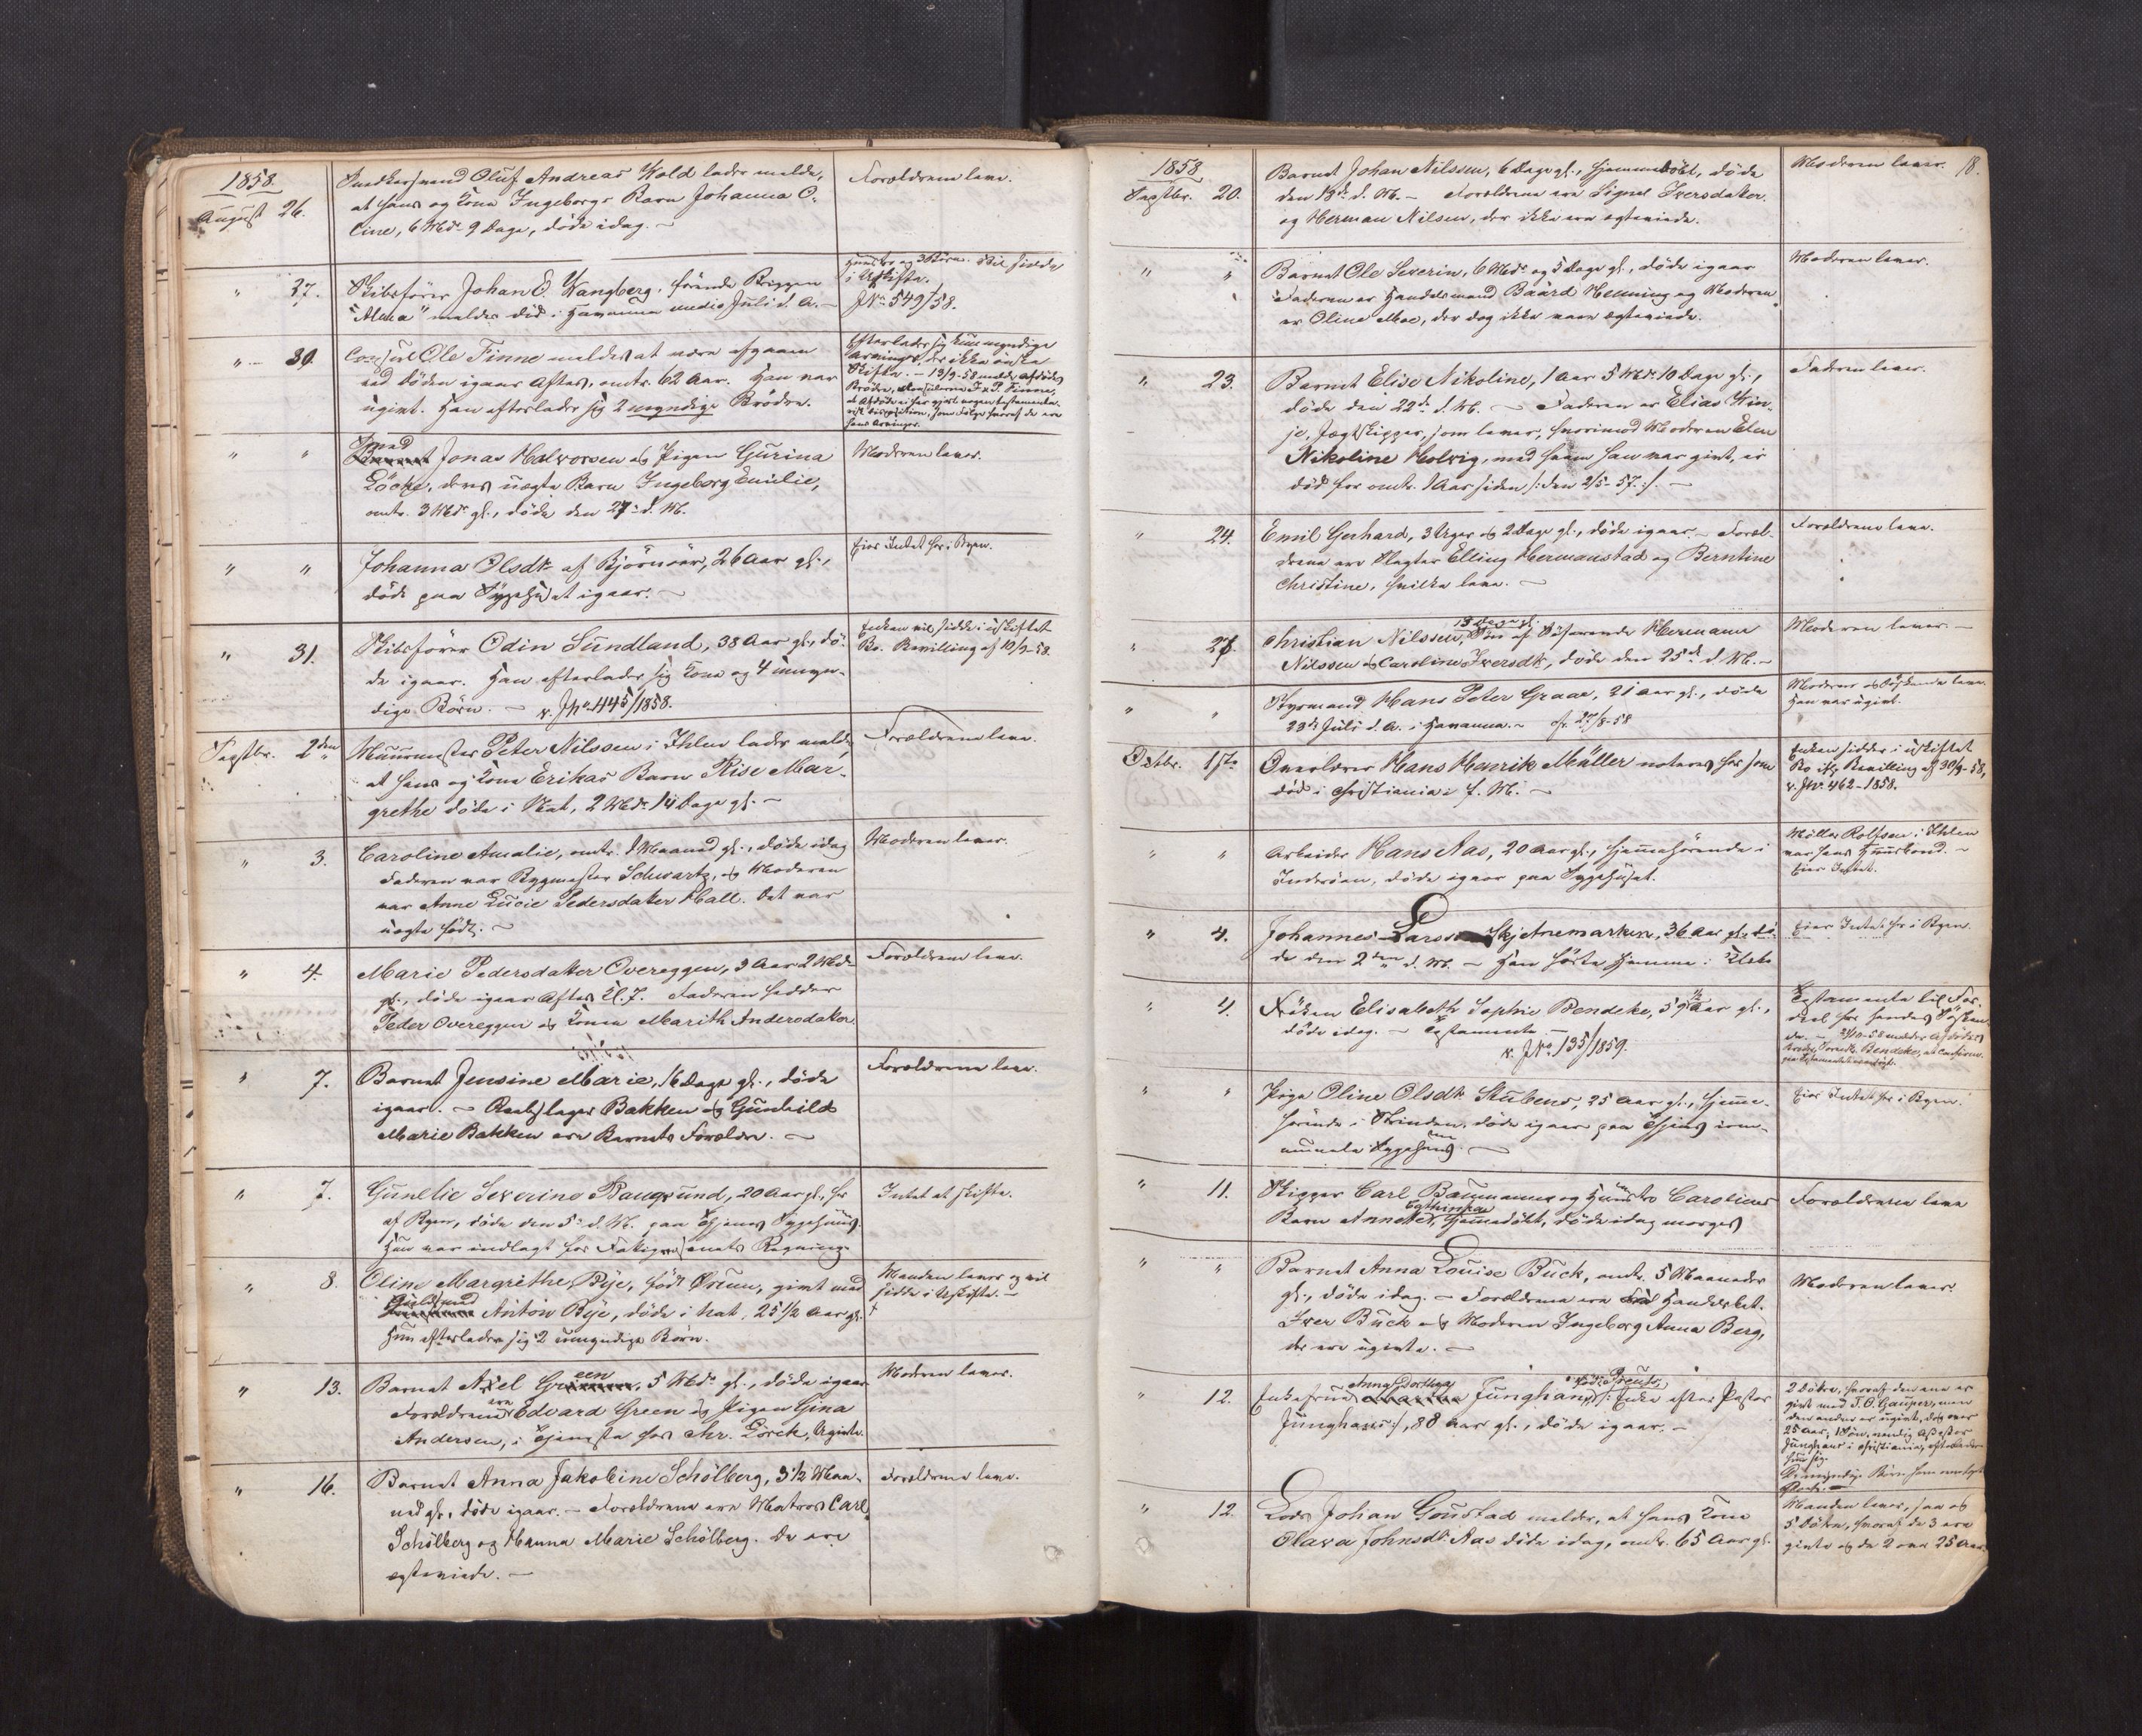 1858.
August 26.
Snedkersvend Oluf Andreas Wold lader melde,
at hans og Kone Ingeborgs Barn Johanna O-
line, 6 Mdr. 9 Dage, døde idag. –
Forældrene leve.
" 27.
Skibsfører Johan E. Wangberg, førende Briggen
"Alma" meldes død i Havanna medio Juli d. A. –
Hustro og 3 Børn. Vil sidde
i Uskifte.
JNo. 549/58.
" – 30.
Consul Ole Finne meldes at være afgaaen
ved Døden igaar Aftes, omtr. 62 Aar. Han var
ugivt. Han efterlader sig 2 myndige Brødre.
Efterlader sig kun myndige
Arvinger, der ikke ønske
Skifte. – 13/9-58 melder afdødes
Brødre,
at Afdøde ei har gjort nogen testamenta-
risk Disposition, som Følge hvoraf de ere
hans Arvinger.
" "
Svend
Jonas Halvorsen og Pigen Gurina
Løcke, deres uægte Barn Ingeborg Emilie,
omtr. 3 Mdr. gl., døde den 27de d. M.
Moderen lever.
" "
Johanna Olsdtr. af Bjørnør, 26 Aar gl.,
døde paa Sygehuset igaar. –
Eier Intet her i Byen.
" 31.
Skibsfører Odin Sundland, 38 Aar gl., dø-
de igaar. Han efterlader sig Kone og 4 umyn-
dige Børn. – v. JNo. 445/1858.
Enken vil sidde i uskiftet
Bo. Bevilling af 10/9-58.
Septbr. 2den
Muurmester Peter Nilssen i Ihlen lader melde,
at hans og Kone Erikas Barn Risе Mar-
grethe døde i Nat, 2 Mdr. 14 Dage gl. –
Forældrene leve.
" 3.
Caroline Amalie, omtr. 1 Maaned gl., døde idag
Faderen var Bygmester Schwartz, og Moderen
var Anne Lucie Pedersdatter Hall. Det var
uægte født. –
Moderen lever.
" 4.
Marie Pedersdatter Overeggen, 3 Aar 2 Mdr.
gl., døde igaar Aftes Kl. 7. Faderen hedder
Peder Overeggen og Konen Marith Andersdatter.
Forældrene leve.
" 7.
Barnet Jensine Marie, 16 Dage gl., døde
igaar. – Rebslager Bakken og Gunhild
Marie Bakken ere Barnets Forældre. –
Forældrene leve.
" 7.
Gunelie Severine Baugsund, 20 Aar gl., her
af Byen, døde den 5te d. M. paa Byens Sygehuus.
Hun var indlagt for Fattigvæsenets Regning.
Intet at skifte.
" 8.
Oline Margrethe Bye, født Ørum, givt med
Guldsmed
Anton Bye, døde i Nat, 25 1/2 Aar gl.
Hun efterlader sig 2 umyndige Børn.
Manden lever og vil
sidde i Uskifte. –
" 13.
Barnet Axel Green, 5 Mdr. gl., døde igaar
Forældrene ere Edvard Green og Pigen Gina
Andersen, i Tjeneste hos Chr. Lorck, Ugivte.
Moderen lever.
" 16.
Barnet Anna Jakobine Schölberg, 3 1/2 Maa-
ned gl., døde igaar. – Forældrene ere Matros Carl
Schölberg og Hanna Marie Schölberg. De ere
egteviede. –
Forældrene leve.
18.
1858
Septbr. 20.
Barnet Johan Nilssen, 6 Dage gl., hjemmedøbt, døde
den 18de d. M. – Forældrene ere Signel Iversdatter
og Herman Nilsen, der ikke ere egteviede.
Moderen lever.
" "
Barnet Ole Severin, 6 Mdr. og 5 Dage gl., døde igaar
Faderen er Handelsmand Baard Henning og Moderen
er Oline Moe, der dog ikke vare egteviede.
Moderen lever.
" 23.
Barnet Elise Nikoline, 1 Aar 5 Mdr. 10 Dage gl.,
døde den 22de d. M. – Faderen er Elias Win-
je, Jægtskipper, som lever, hvorimod Moderen Elen
Nikoline Holvig, med hvem han var givt, er
død for omtr. 1 Aar siden /: den 2/5-57. :/. –
Faderen lever.
" 24.
Emil Gerhard, 3 Uger og 2 Dage gl., døde igaar. – Foræl-
drene ere Slagter Elling Hermanstad og Berntine
Christine, hvilke leve. –
Forældrene leve.
" 27.
13 Dage gl.
Christian Nilssen, Søn af Søfarende Hermann
Nilssen og Caroline Iversdtr., døde den 25de d. M. –
Moderen lever. –
" "
Styrmand Hans Peter Graae, 21 Aar gl., døde
23de Juli d. A. i Havanna. – cfr. 27/8-58
Moderen og Søskende leve.
Han var ugivt.
Octbr. 1ste
Overlærer Hans Henrik Müller noteres her som
død i Christiania i f. M. –
Enken sidder i uskiftet
Bo iflg. Bevilling af 30/9-58,
v. JNo. 462-1858.
" "
Arbeider Hans Aas, 20 Aar gl., hjemmehørende i
Inderøen, døde igaar paa Sygehuset.
Møller Rolfsen i Ihlen
var hans Huusbond. –
Eier Intet.
" 4.
Johannes Skjetnemarken, 36 Aar gl., dø-
de den 2den d. M. – Han hørte hjemme i Klæbo
Eier Intet her i Byen.
" 4.
Frøken Elisabeth Sophie Bendeke, 59 1/2 Aar gl.,
døde idag. – Testamente. –
v. JNo. 135/1859.
Testamente til For-
deel for hendes Søsken-
de. – 24/10-58 melder Afdødes
Broder, Bendeke,
" "
Pige Oline Olsdtr. Stubens, 25 Aar gl., hjemme-
hørende i Strinden, døde igaar paa Byens com-
munale Sygehuus. –
Eier Intet her i Byen.
" 11.
Skipper Carl Baumanns og Hustro Carolines
Cathinka
Barn Annette, hjemmedøbt, døde idag morges
Forældrene leve
" "
Barnet Anna Louise Buck, omtr. 5 Maaneder
gl., døde idag. – Forældrene ere Handelsbet.
Iver Buck og Moderen Ingeborg Anna Berg,
der ere ugivte. –
Moderen lever.
" 12.
Anna Dorothea født Preuts,
Enkefrue Junghans, /: Enke efter Pastor
Junghans :/, 88 Aar gl., døde igaar. –
2 Døtre, hvoraf den ene er
givt med T. O. Gauper, men
den anden er ugivt, dog over
25 Aar; 1 Søn, nemlig Assessor
Junghans i Christiania, efterlader
hun sig.
" 12.
Lods Johan Goustad melder, at hans Kone
Olava Johnsdtr. Aas døde idag, omtr. 65 Aar gl.
Manden lever, saa og
5 Døtre, hvoraf de 3 ere
givte og de 2 over 25 Aar.